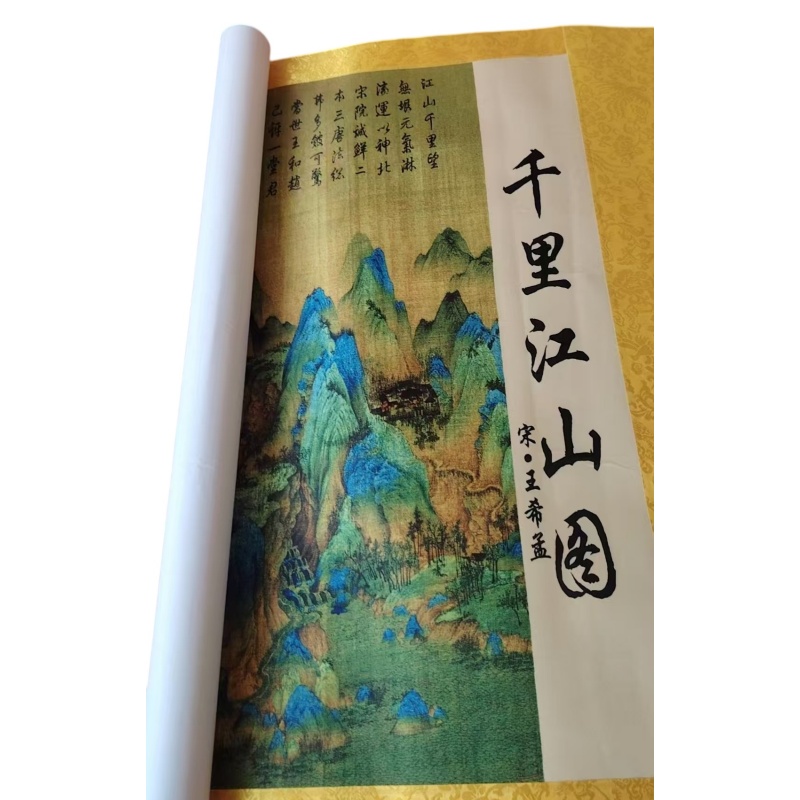 千里江山图
宋·王希孟
江山千里望
無垠元氣淋
漓運以神北
宋院誠鮮二
本三唐法總
弗多餘可驚
當世王和趙
已訝一堂君